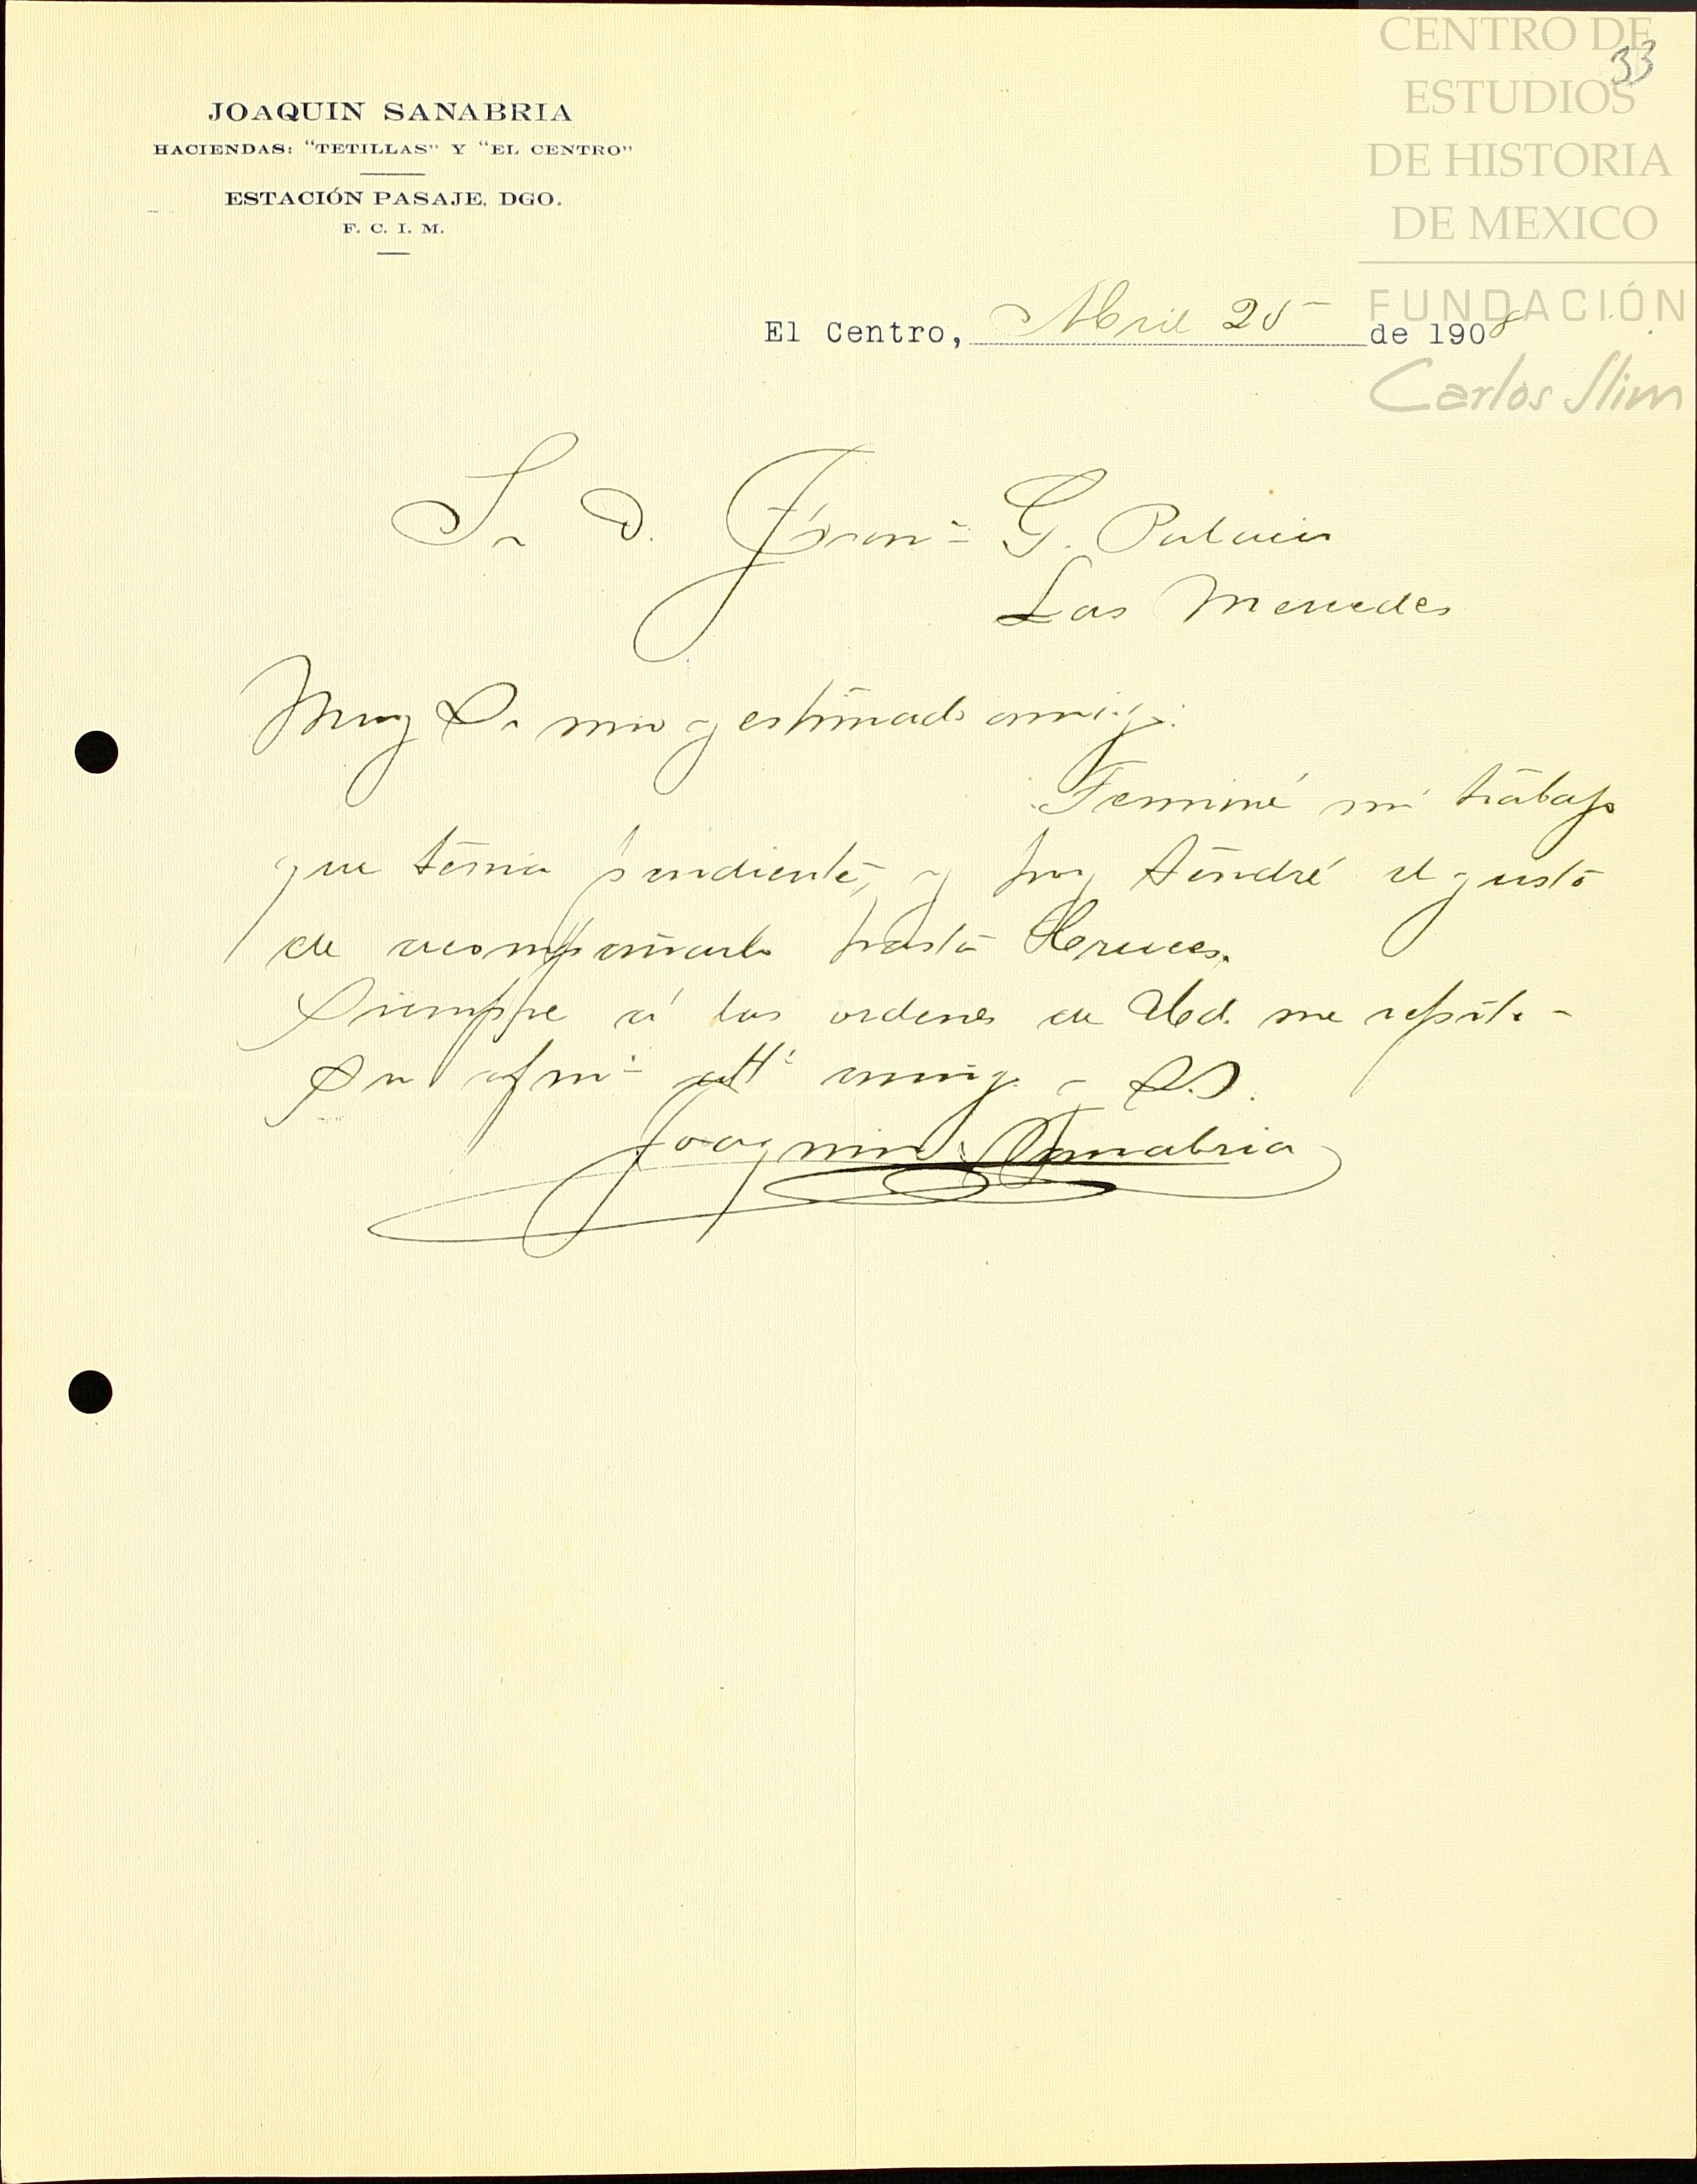 CENTRO DE
ESTUDIOS
DE HISTORIA
DE MEXICO
FUNDACIÓN
Carlos Slim
33
JOAQUIN SANABRIA
HACIENDAS: "TETILLAS" Y "EL CENTRO"
ESTACIÓN PASAJE, DGO.
F. C. I. M.
El Centro, Abril 25 de 1908
Sr D. Franco G. Palacio
Las Mercedes
Muy Sr mio y estimado amigo:
Terminé mi trabajo
que tenia pendiente, y hoy tendré el gusto
de acompañarlo hasta Cruces.
Siempre á las ordenes de Ud. me repito
Su afmo atto amigo y S.S.
Joaquin Sanabria